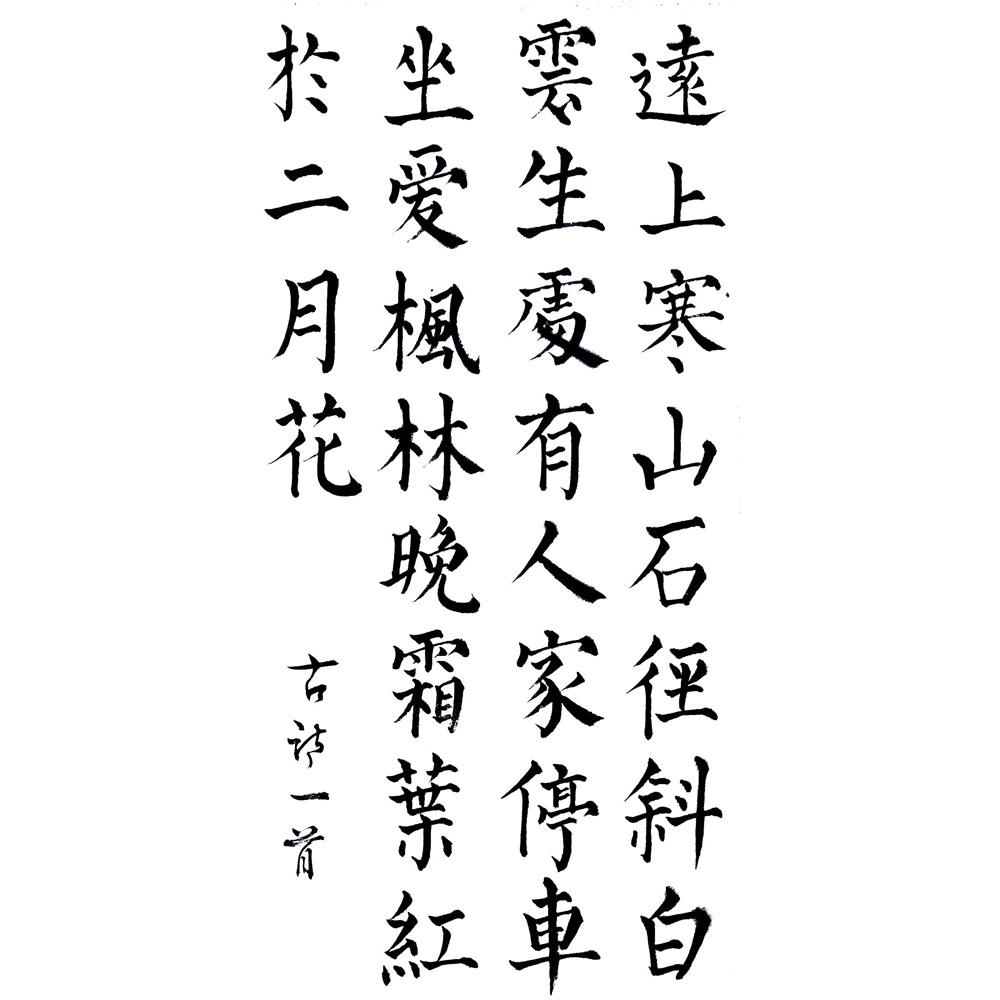 遠上寒山石徑斜白
雲生處有人家停車
坐爱楓林晚霜葉紅
於二月花
古詩一首